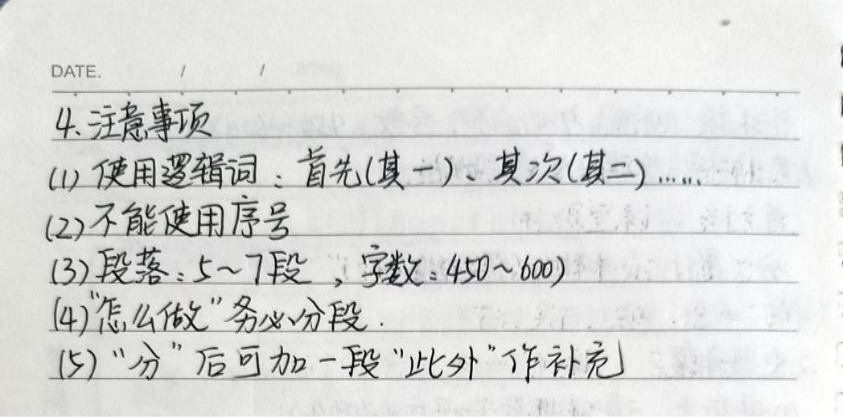 DATE. / /
4. 注意事项
(1) 使用逻辑词：首先(其一)、其次(其二)……
(2) 不能使用序号
(3) 段落：5～7段，字数：450～600)
(4)"怎么做"务必分段.
(5)"分"后可加一段"此外"作补充